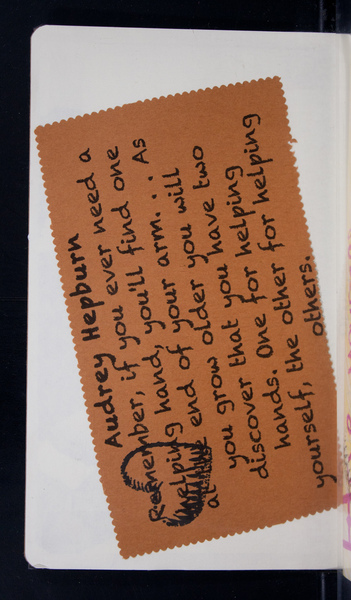 Audrey Hepburn
Remember, if you ever need a
helping hand, you'll find one
at the end of your arm... As
you grow older you will
discover that you have two
hands. One for helping
yourself, the other for helping
others.